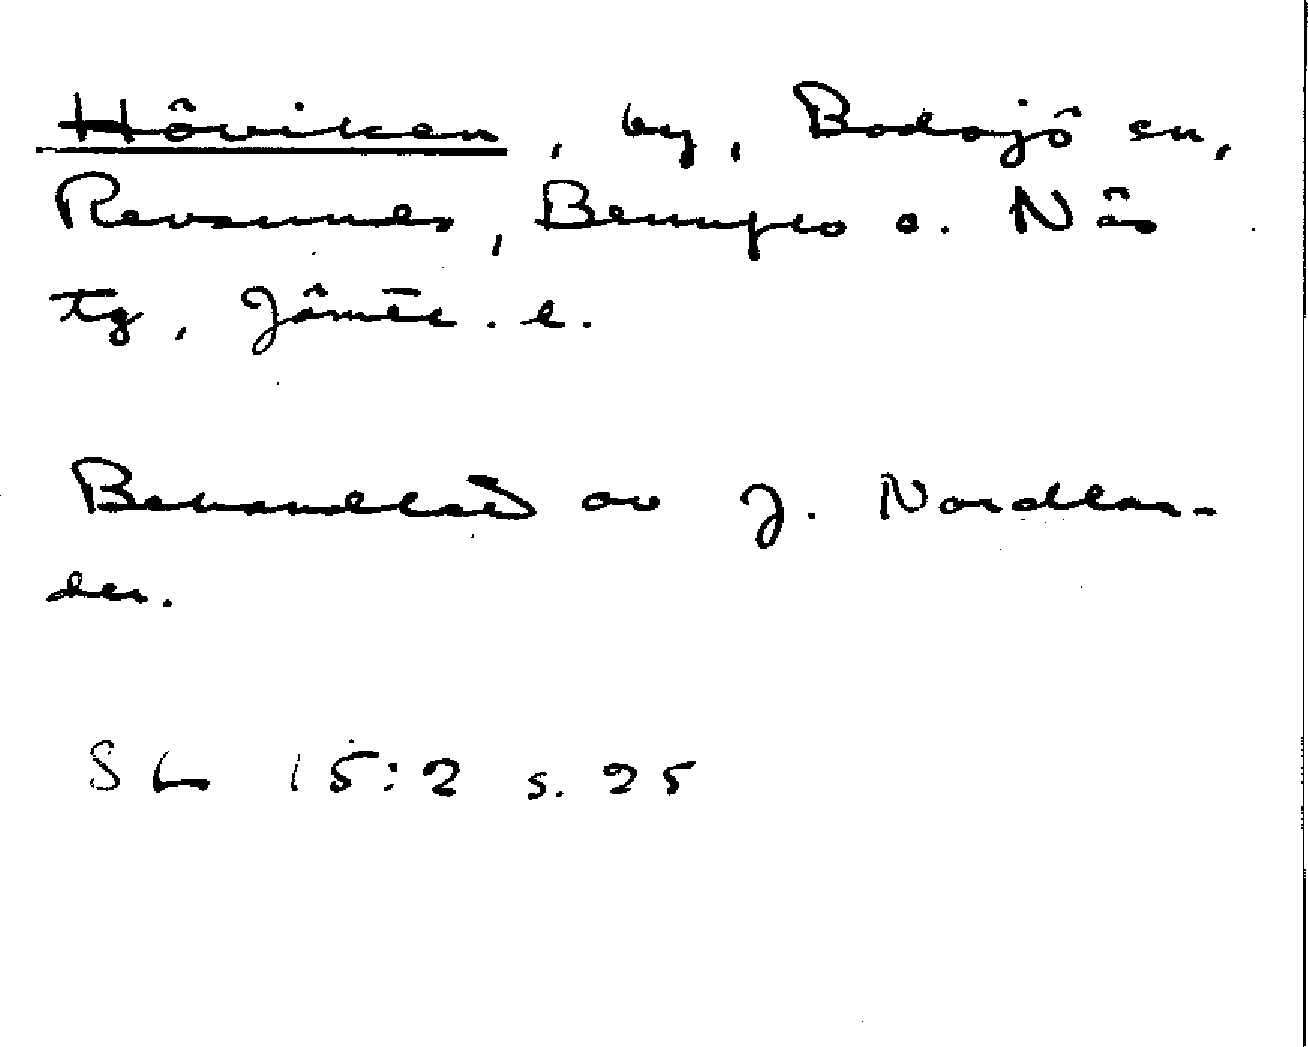 Höviken, by, Bodsjö sn,
Revsunds, Brunflo o. Näs
tg, Jämtl. l.
Behandlat av J. Nordlan-
der.
SL 15:2 s. 25